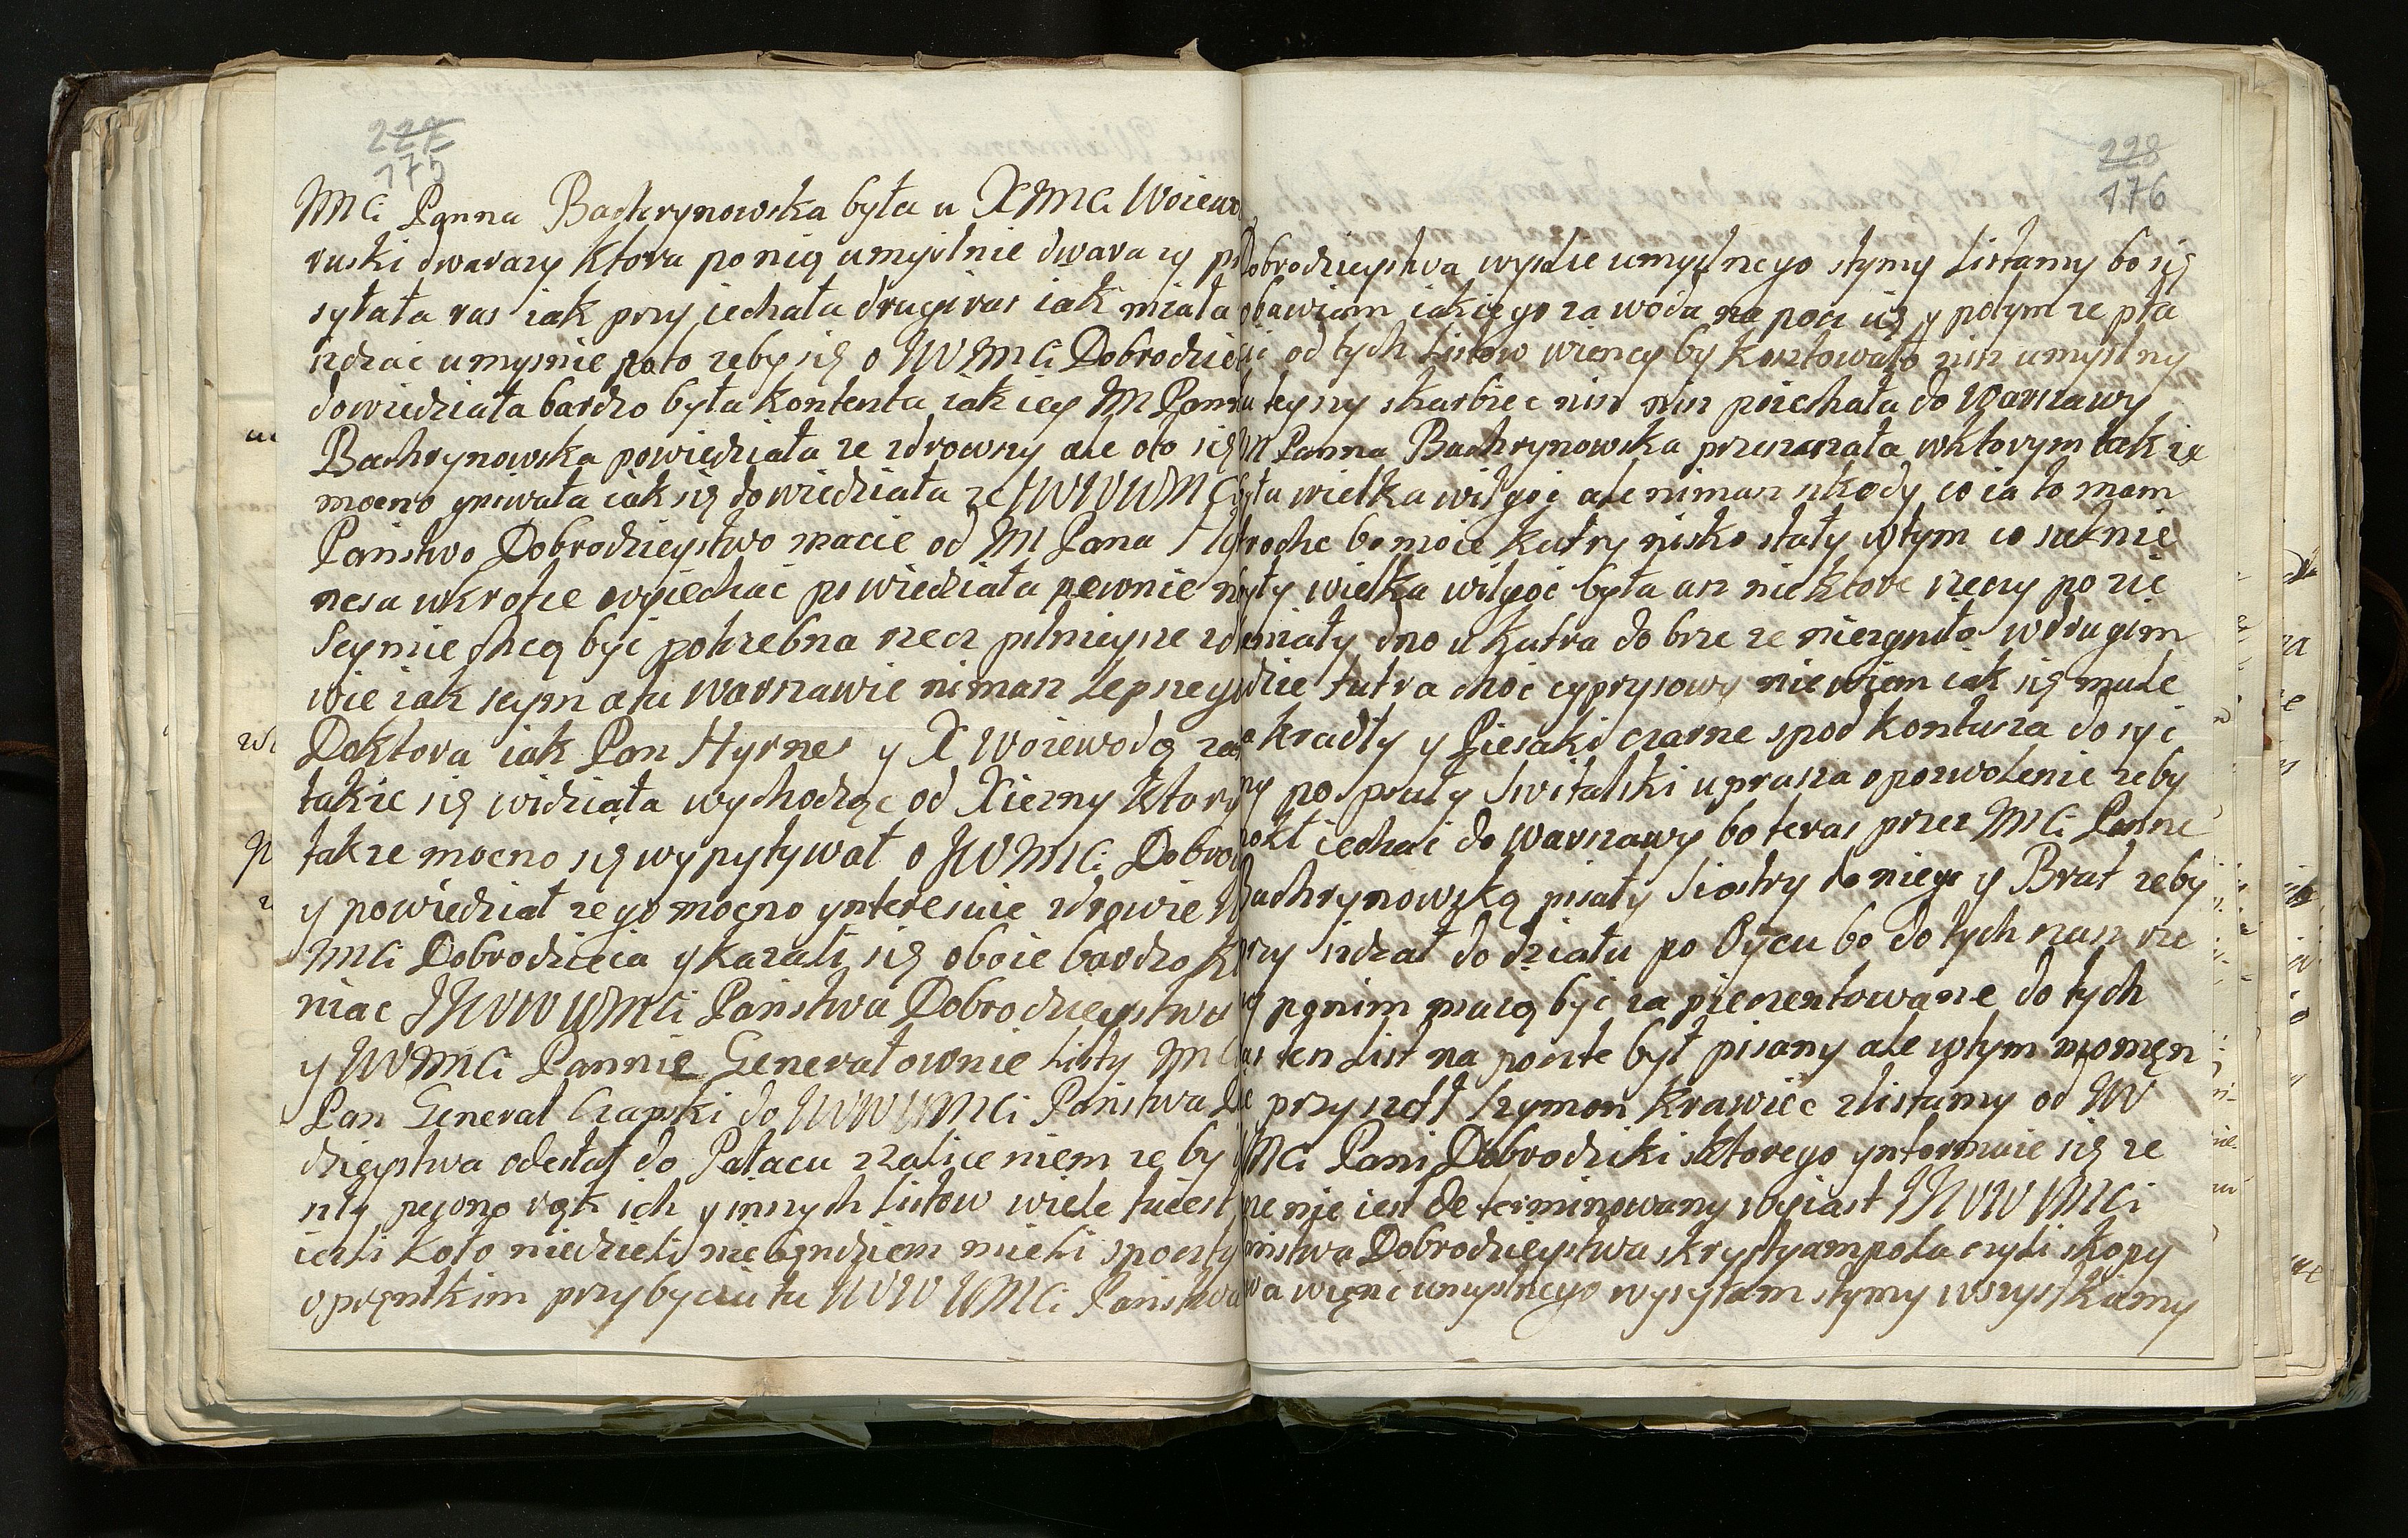 227
175
MCi Panna Bachrynowska była u XMCi Woiewo
ruski dwarazy ktora ponią umyslnie dwarazy p
syłała ras iak przyiechała drugi ras iak miała
izdzać umysnie poto zeby się o JWMCi Dobrodzie
dowiedziała bardzo była kontenta iak iey M Pann
Bachrynowska powiedziała ze zdrowszy ale oto się
mocno gniwała iak się dowiedziała ze JWWWMC
Państwo Dobrodzieystwo macie od M Pana Hy
nesa wkrotce wyiechać powiedziała pewnie n
Seymie chcą być potrzebna rzecz pilnieysze zd
wie iak seym a tu Warszawie nimasz Lepszeg
Doktora iak Pan Hyrnes y X Woiewodą zas
takze się widziała wychodząc od Xiezny Ktory
takze mocno się wypytywał o JWMCi Dobrod
y powiedział ze go mocno ynteresuie zdrowie
MCi Dobrodzieia ykazali się oboie bardzo k
niac JJWWWMCi Państwa Dobrodzieystwu
y JWMCi Pannie Generałownie Listy MC
Pan Generał Czapski do JWWWMCi Państwa D
dzieystwa odesłał do Pałacu zzaliceniem ze by
szły pewno rąk ich y innych Listow wiele tuiest
iesli koło niedzieli niebędziem mieli spoczty
o prentkim przybyciu tu JWWWMCi Państwa
228
176
Dobrodzieystwa wyslie umyslnego stymy Listamy bosię
obawiam iakiego zawodu na poczcie y potym ze pła
cić od tych Listow wiency by kosztowało nisz umyslny
u teyszy skarbiec nisz nisz poiechała do Warszawy
M Panna Bachrynowska przesuszała wktorym takze
była wielka wilgoć ale nimasz szkody co ia to mam
troche bo moie kufry nisko stały wtym co suknie
były wielka wilgoć była asz niektore rzeczy po zie
leniały dno u kufra dobrze ze niezgniło wdrugim
dzie futra choć cyprysowy niewiem iak się mule
kradły y Piesaki czarne spod kontusza dosyć
ny pospruły Switalski uprasza opozwolenie zeby
mokł iechać do Warszawy bo teras przez MCi Panne
Bachrynowską pisały Siostry do niego y Brat zeby
przyizdzał do działu po Oycu bo do tych czas rze
czy ponim maią być zapiczentowane do tych
czas ten List na poczte był pisany ale wtym momęn
cie przyszetł Szymon Krawiec zlistamy od JW
MCi Pani Dobrodziki sktorego ynformuie się ze
ze nie iest determinowany wyiast JJWWMCi
Państwa Dobrodzieystwa skrystyampola czyli skopy
wa więnc umyslnego wysyłam stymy wszystkiemy